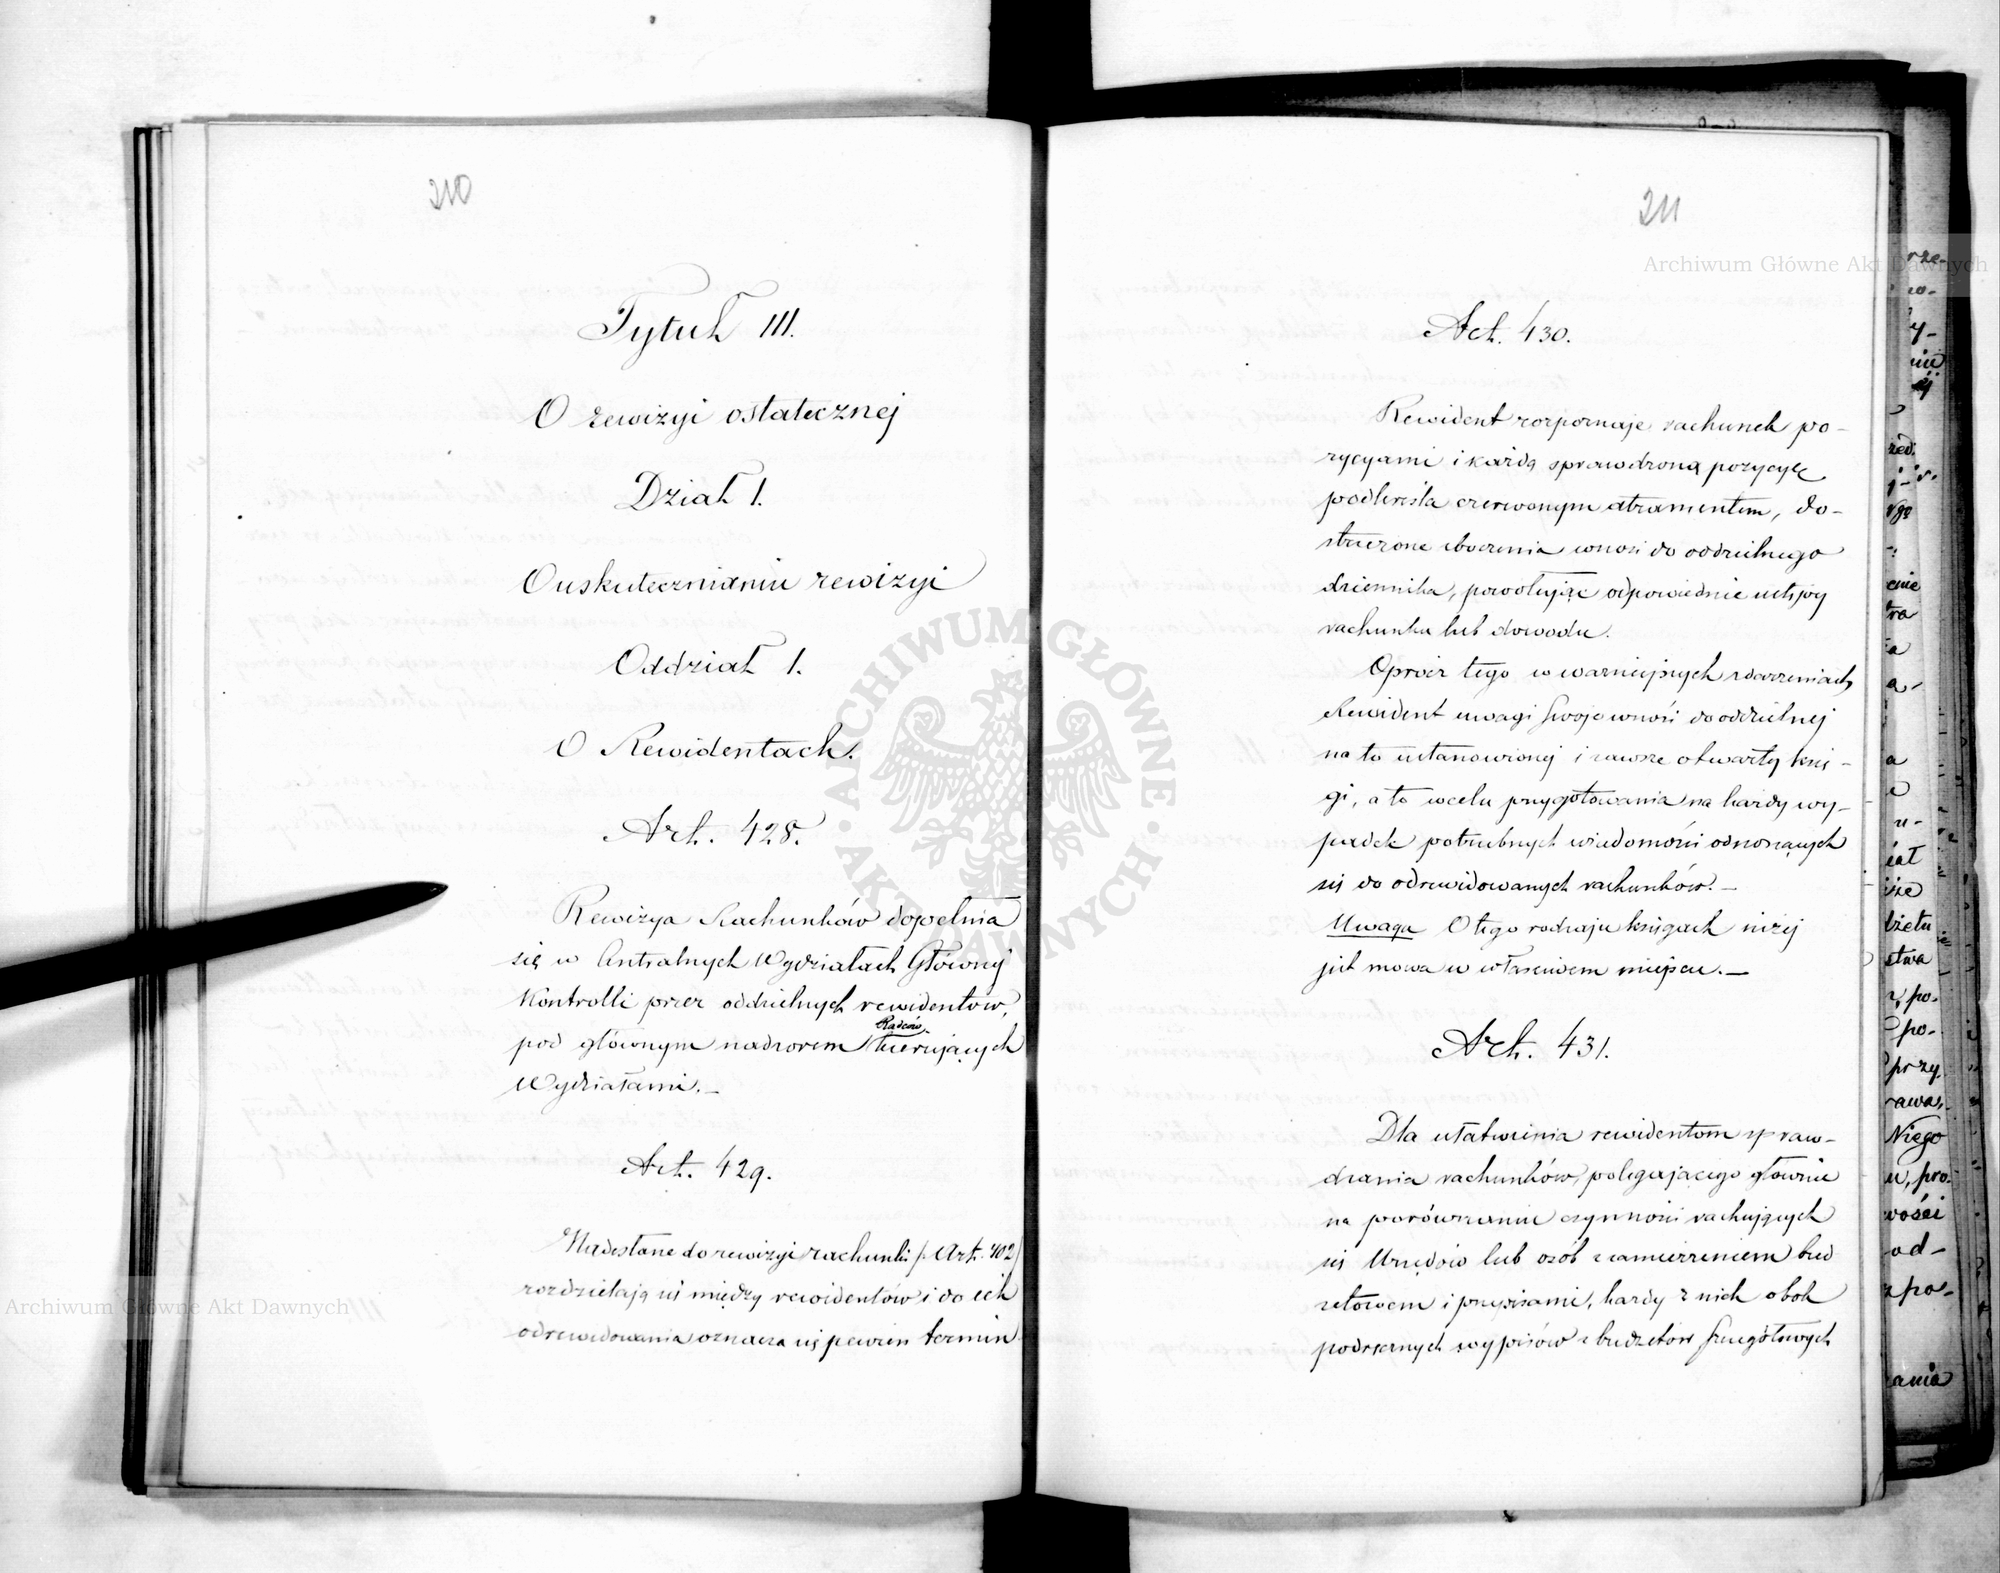 210
Tytuł III.
O rewizyi ostatecznej
Dział I.
O uskutecznianiu rewizyi
Oddział I.
O Rewidentach.
Art. 428.
Rewizya Rachunków dopełnia
się w Centralnych Wydziałach Głównej
Kontrolli przez oddzielnych rewidentów,
pod głównym nadzorem Radców kierujących
Wydziałami. –
Art. 429.
Nadesłane do rewizyi rachunki (: Art. 402)
rozdzielają się między rewidentów i do ich
odrewidowania oznacza się pewien termin
211
Art. 430.
Rewident rozpoznaje rachunek po-
zycyami i każdą sprawdzoną pozycyę
podkreśla czerwonym atramentem, do-
strzeżone zboczenia wnosi do oddzielnego
dziennika, powołując odpowiednie ustępy
rachunku lub dowodu.
Oprócz tego w ważniejszych zdarzeniach
Rewident uwagi swoje wnosi do oddzielnej
na to ustanowionej i zawsze otwartej księ-
gi, a to w celu przygotowania na każdy wy-
padek potrzebnych wiadomości odnoszących
się do odrewidowanych rachunków. –
Uwaga O tego rodzaju księgach niżej
jest mowa w właściwem miejscu. –
Art. 431.
Dla ułatwienia rewidentom spraw-
dzania rachunków, polegającego głównie
na porównaniu czynności rachujących
się Urzędów lub osób z zamierzeniem bud
żetowem i przepisami, każdy z nich obok
podręcznych wypisów z budżetów szczegółowych
Archiwum Główne Akt Dawnych
Archiwum Główne Akt Dawnych
ARCHIWUM GŁÓWNE
AKT DAWNYCH